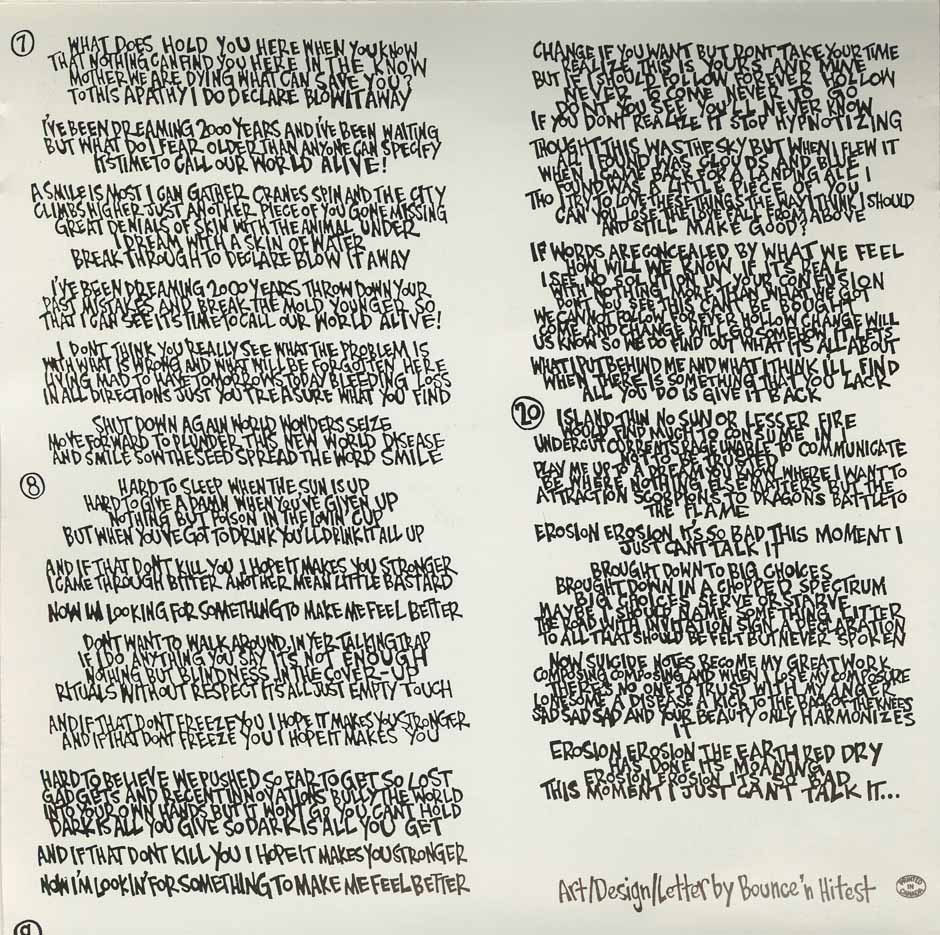 7
WHAT DOES HOLD YOU HERE WHEN YOU KNOW
THAT NOTHING CAN FIND YOU HERE IN THE KNOW
MOTHER WE ARE DYING WHAT CAN SAVE YOU?
TO THIS APATHY I DO DECLARE BLOW IT AWAY
I'VE BEEN DREAMING 2000 YEARS AND I'VE BEEN WAITING
BUT WHAT DO I FEAR OLDER THAN ANYONE CAN SPECIFY
ITS TIME TO CALL OUR WORLD ALIVE!
A SMILE IS MOST I CAN GATHER CRANES SPIN AND THE CITY
CLIMBS HIGHER JUST ANOTHER PIECE OF YOU GONE MISSING
GREAT DENIALS OF SKIN WITH THE ANIMAL UNDER
I DREAM WITH A SKIN OF WATER
BREAK THROUGH TO DECLARE BLOW IT AWAY
I'VE BEEN DREAMING 2000 YEARS THROW DOWN YOUR
PAST MISTAKES AND BREAK THE MOLD YOUNGER SO
THAT I CAN SEE ITS TIME TO CALL OUR WORLD ALIVE!
I DONT THINK YOU REALLY SEE WHAT THE PROBLEM IS
WITH WHAT IS WRONG AND WHAT WILL BE FORGOTTEN HERE
LIVING MAD TO HAVE TOMORROWS TODAY BLEEDING LOSS
IN ALL DIRECTIONS JUST YOU TREASURE WHAT YOU FIND
SHUT DOWN AGAIN WORLD WONDERS SEIZE
MOVE FORWARD TO PLUNDER THIS NEW WORLD DISEASE
AND SMILE SOW THE SEED SPREAD THE WORD SMILE
8
HARD TO SLEEP WHEN THE SUN IS UP
HARD TO GIVE A DAMN WHEN YOU'VE GIVEN UP
NOTHING BUT POISON IN THE LOVIN CUP
BUT WHEN YOU'VE GOT TO DRINK YOU'LL DRINK IT ALL UP
AND IF THAT DON'T KILL YOU I HOPE IT MAKES YOU STRONGER
I CAME THROUGH BITTER ANOTHER MEAN LITTLE BASTARD
NOW IM LOOKING FOR SOMETHING TO MAKE ME FEEL BETTER
DONT WANT TO WALK AROUND IN YER TALKING TRAP
IF I DO ANYTHING YOU SAY ITS NOT ENOUGH
NOTHING BUT BLINDNESS IN THE COVER-UP
RITUALS WITHOUT RESPECT ITS ALL JUST EMPTY TOUCH
AND IF THAT DONT FREEZE YOU I HOPE IT MAKES YOU STRONGER
AND IF THAT DONT FREEZE YOU I HOPE IT MAKES YOU
HARD TO BELIEVE WE PUSHED SO FAR TO GET SO LOST
GADGETS AND RECENT INNOVATIONS BULLY THE WORLD
INTO YOUR OWN HANDS BUT IT WONT GO YOU CANT HOLD
DARK IS ALL YOU GIVE SO DARK IS ALL YOU GET
AND IF THAT DONT KILL YOU I HOPE IT MAKES YOU STRONGER
NOW I'M LOOKIN' FOR SOMETHING TO MAKE ME FEEL BETTER
9
CHANGE IF YOU WANT BUT DONT TAKE YOUR TIME
REALIZE THIS IS YOURS AND MINE
BUT IF I SHOULD FOLLOW FOREVER HOLLOW
NEVER TO COME NEVER TO GO
DONT YOU SEE YOU'LL NEVER KNOW
IF YOU DONT REALIZE IT STOP HYPNOTIZING
THOUGHT THIS WAS THE SKY BUT WHEN I FLEW IT
ALL I FOUND WAS CLOUDS AND BLUE
WHEN I CAME BACK FOR A LANDING ALL I
FOUND WAS A LITTLE PIECE OF YOU
THO I TRY TO LOVE THESE THINGS THE WAY I THINK I SHOULD
CAN YOU LOSE THE LOVE FALL FROM ABOVE
AND STILL MAKE GOOD?
IF WORDS ARE CONCEALED BY WHAT WE FEEL
HOW WILL WE KNOW IF IT'S REAL
I SEE NO SOLUTION IN YOUR CONFUSION
WITH NOTHING MORE THAN WHAT WE GOT
DON'T YOU SEE THIS CAN'T BE BOUGHT
WE CANNOT FOLLOW FOREVER HOLLOW CHANGE WILL
COME AND CHANGE WILL GO SOMEHOW IT LETS
US KNOW SO WE DO FIND OUT WHAT ITS ALL ABOUT
WHAT I PUT BEHIND ME AND WHAT I THINK ILL FIND
WHEN THERE IS SOMETHING THAT YOU LACK
ALL YOU DO IS GIVE IT BACK
20
ISLAND THIN NO SUN OR LESSER FIRE
WOULD FIND MUCH TO CONSUME IN I
UNDERCUT CURRENTS ROSE UNABLE TO COMMUNICATE
PLAY ME UP TO A
BE WHERE NOTHING ELSE MATTERS BUT THE
ATTRACTION SCORPIONS TO DRAGONS BATTLE TO
THE FLAME
EROSION EROSION IT'S SO BAD THIS MOMENT I
JUST CANT TALK IT
BROUGHT DOWN TO BIG CHOICES
BROUGHT DOWN IN A CHOPPED SPECTRUM
BIG CHOICES SERVE OR STARVE
MAYBE I SHOULD NAME SOMETHING LITTER
THE ROAD WITH INVITATION SIGN A DECLARATION
TO ALL THAT SHOULD BE FELT BUT NEVER SPOKEN
NOW SUICIDE NOTES BECOME MY GREAT WORK
COMPOSING COMPOSING AND WHEN I LOSE MY COMPOSURE
THERE'S NO ONE TO TRUST WITH MY ANGER
LONESOME A DISEASE A KICK TO THE BACK OF THE KNEES
SAD SAD SAD AND YOUR BEAUTY ONLY HARMONIZES
IT
EROSION EROSION THE EARTH RED DRY
HAS DONE ITS MOANING
EROSION EROSION ITS SO BAD
THIS MOMENT I JUST CANT TALK IT...
Art/Design/Letter by Bounce 'n Hitest
PRINTED
IN
CANADA